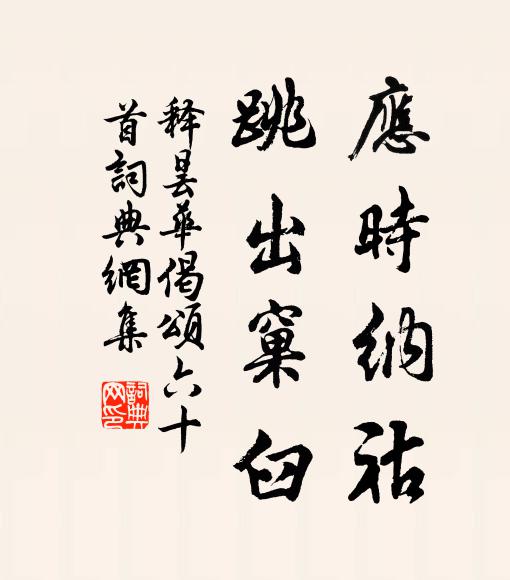 應時納祜
跳出窠臼
释昙華偈頌六十
首詞典網集
詞典
网印